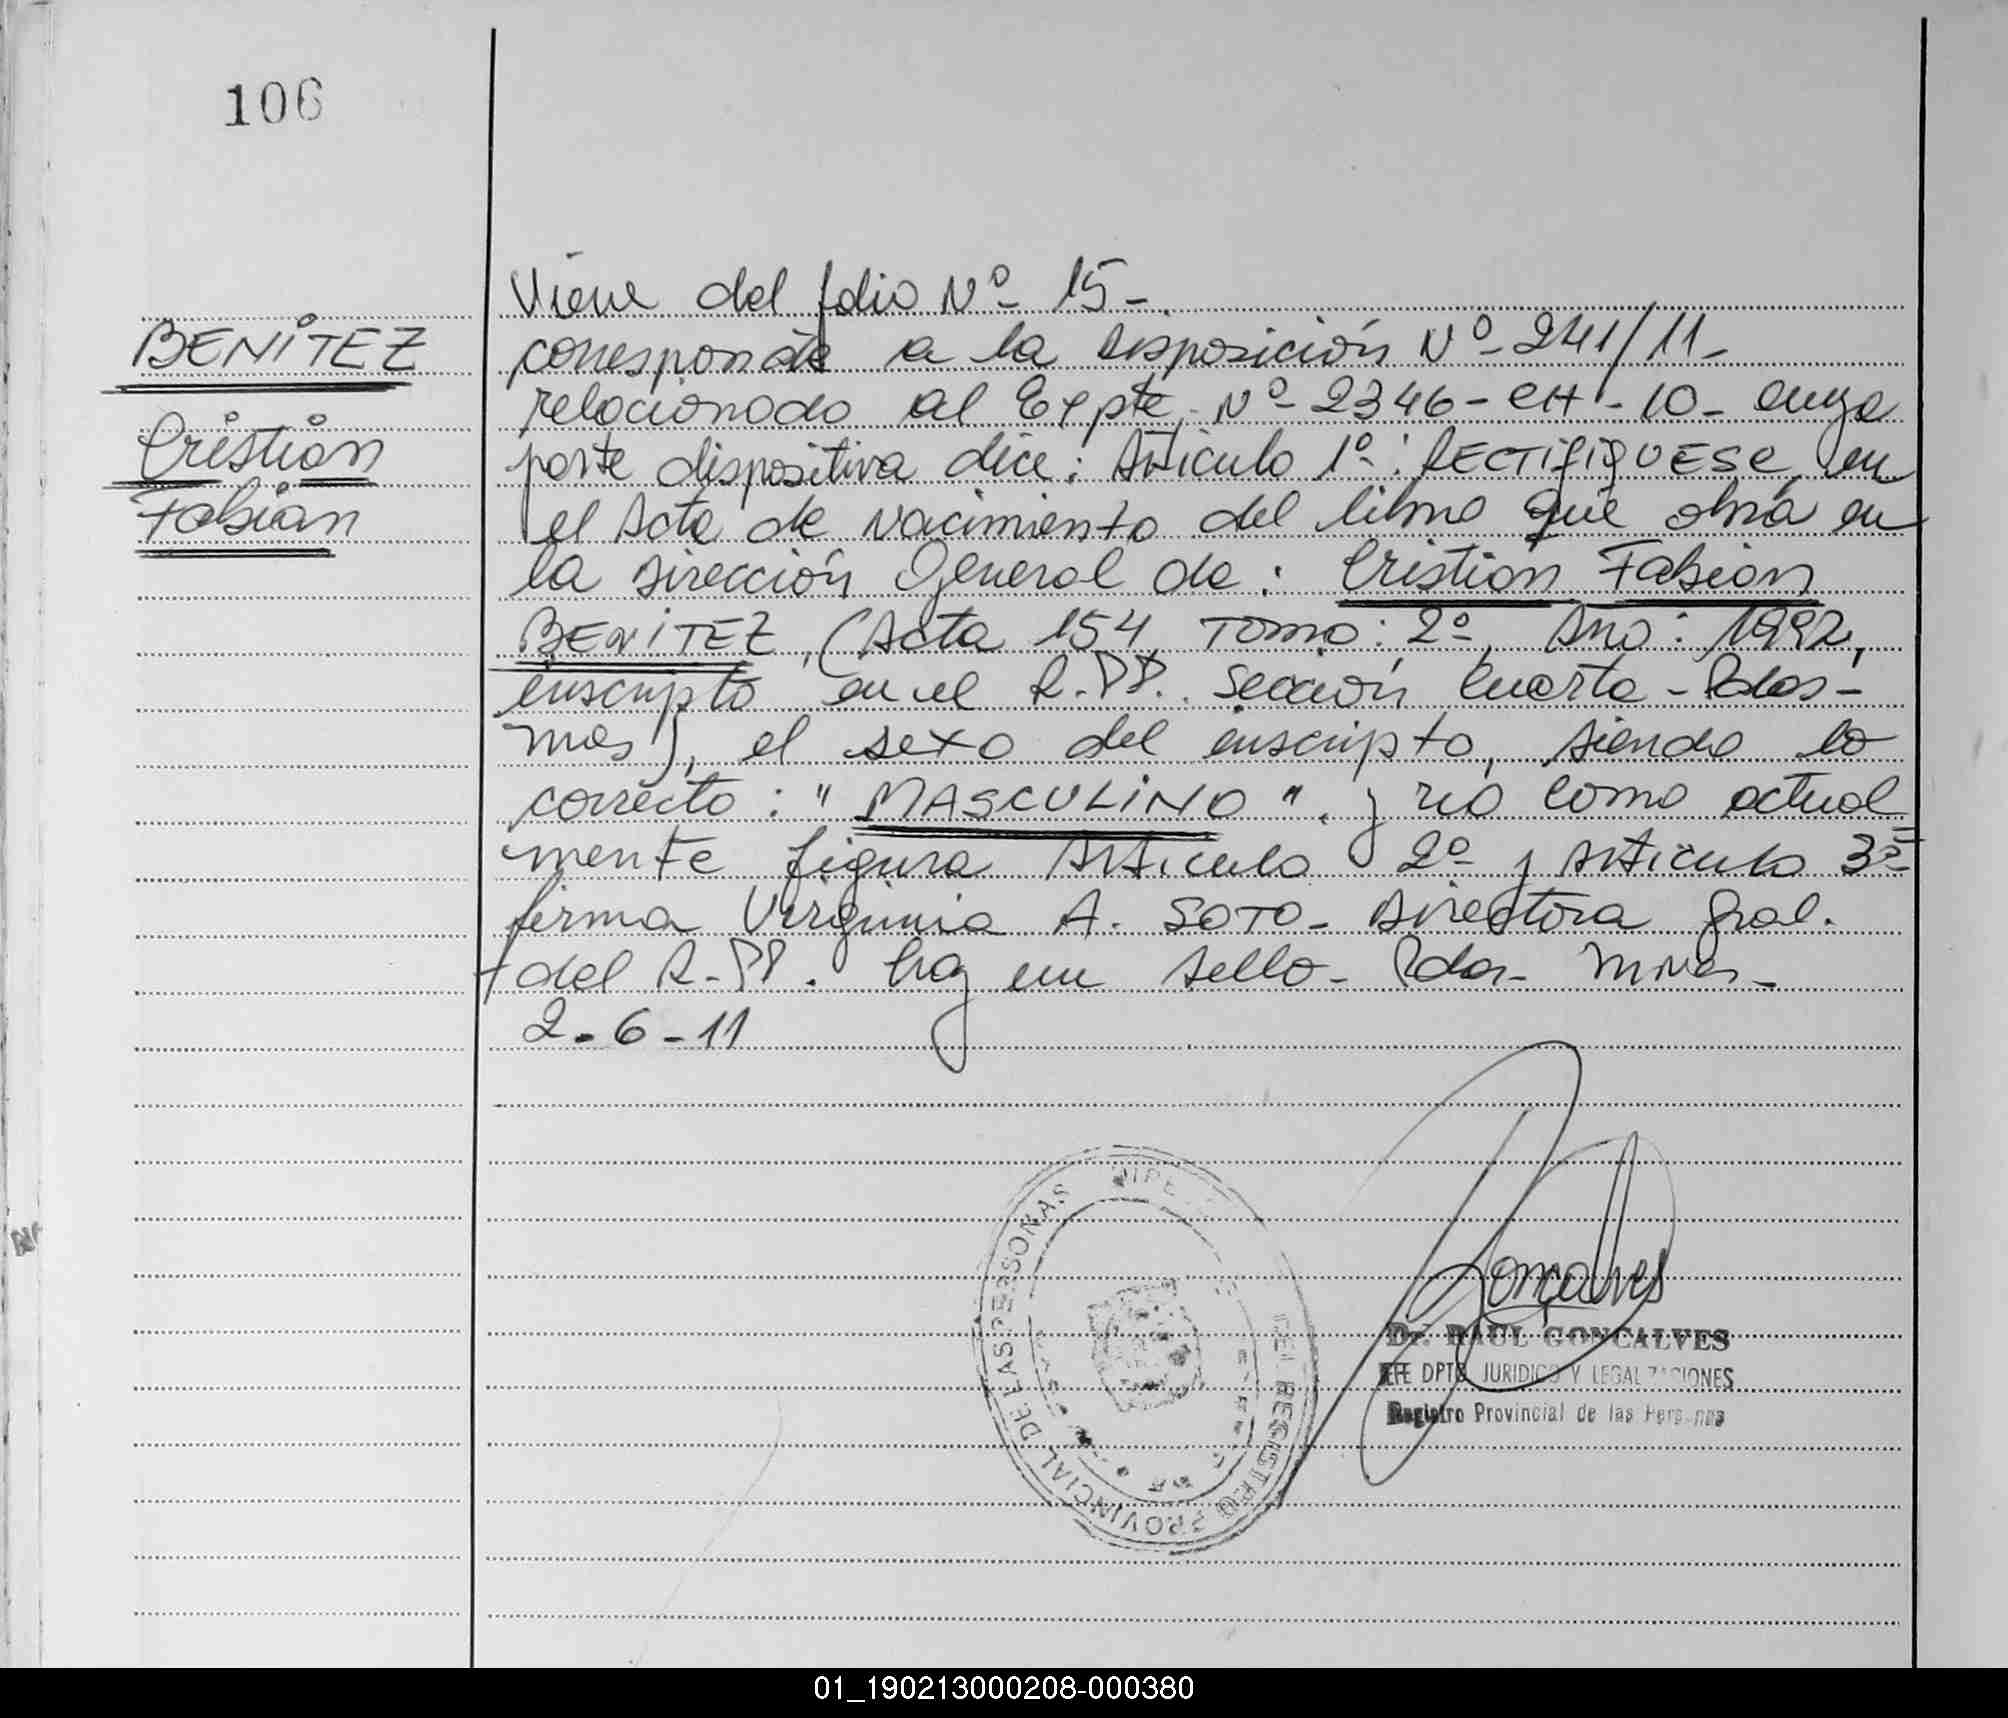 106
BENITEZ
Cristian
Fabian
Viene del folio Nº 15-
corresponde a la Disposición Nº 241/11-
relacionado al Expte. Nº 2346-CH-10- cuya
parte dispositiva dice: Artículo 1º: RECTIFIQUESE, en
el Acta de Nacimiento del libro que obra en
la Dirección General de: Cristian Fabian
BENITEZ, (Acta 154, Tomo: 2º, Año: 1992,
inscripto en el R.PP. Sección Cuarta - Pdas-
mas), el sexo del inscripto, siendo lo
correcto: "MASCULINO". y no como actual
mente figura Artículo 2º y Artículo 3º
firma Virginia A. SOTO- Directora Gral.
del R.PP. hay un sello- Pdas-
2-6-11
DEL REGISTRO PROVINCIAL DE LAS PERSONAS
Goncalves
Dr. RAUL GONCALVES
JEFE DPTO JURIDICO Y LEGALIZACIONES
Registro Provincial de las Personas
01_190213000208-000380